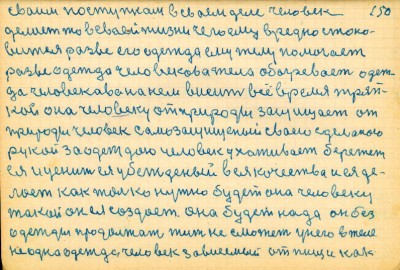 своим поступкам в своем деле человек 150
делает то в своей жизни чего ему вредно стоко-
вится разве его одежда ему телу помогает
разве одежда человекова тела обогревает одеж-
да человекава на нем висит всё время тряп-
кой она человеку от природы защищает от
природы человек самозащищеный своею сделаною
рукой за одеждою человек ухаживает бережет
ея и ценит ея убежденый вся качества и ея де-
лает как только нужно будет она человеку
такой он ея создает она будет нада он без
одежды продолжат жит не сможет у него в теле
не одна одежда человек зависемый от пищи как